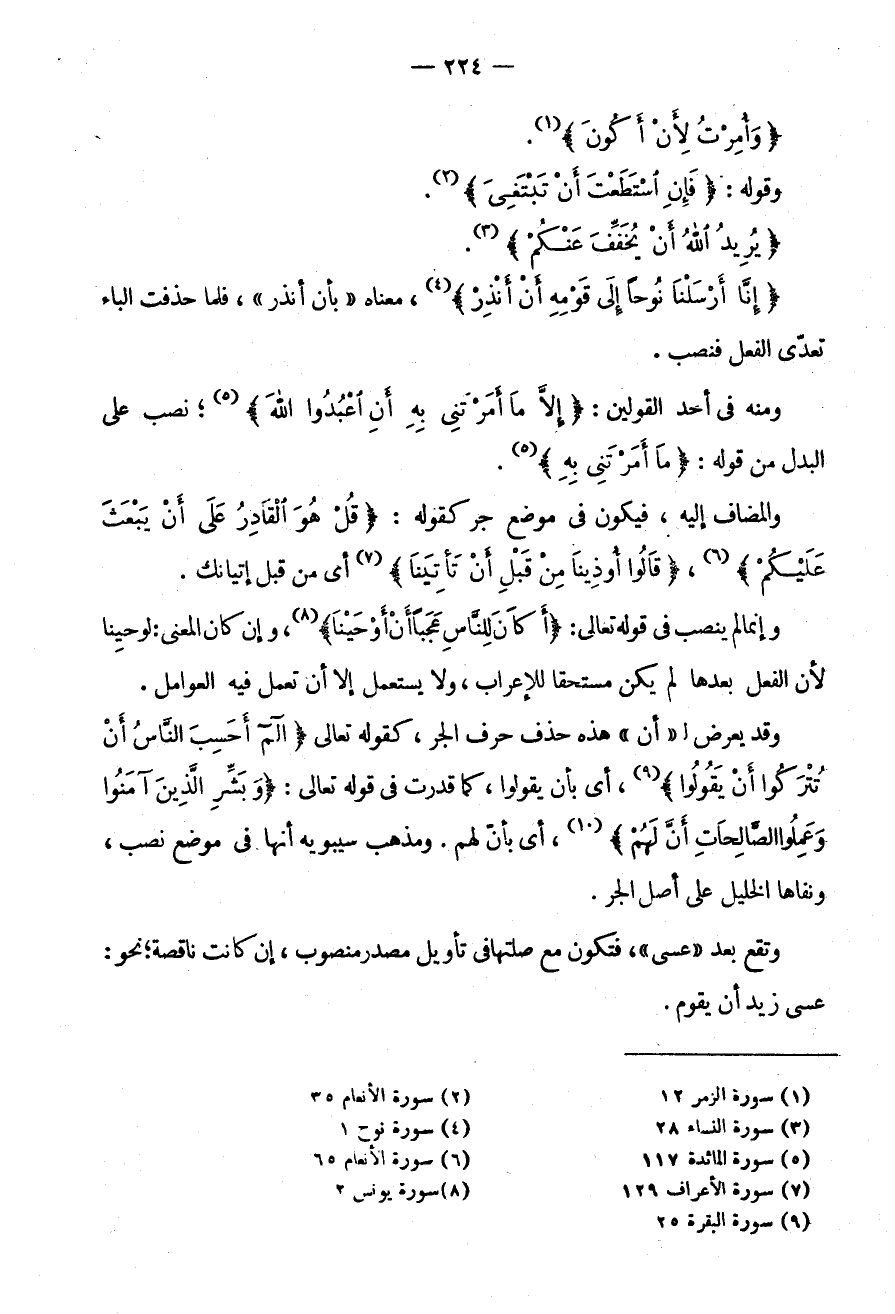 — ٢٢٤ —
﴿ وَأُمِرْتُ لِأَنْ أَكُونَ ﴾(١).
وقوله : ﴿ فَإِنِ ٱسْتَطَعْتَ أَنْ تَبْتَغِىَ ﴾(٢).
﴿ يُرِيدُ ٱللهُ أَنْ يُخَفِّفَ عَنْكُمْ ﴾(٣).
﴿ إِنَّا أَرْسَلْنَا نُوحاً إِلَى قَوْمِهِ أَنْ أَنْذِرْ ﴾(٤) ، معناه « بأن أنذر » ، فلما حذفت الباء
تعدّى الفعل فنصب .
ومنه فى أحد القولين : ﴿ إِلاَّ مَا أَمَرْتَنِى بِهِ أَنِ ٱعْبُدُوا اللهَ ﴾(٥) ؛ نصب على
البدل من قوله : ﴿ مَا أَمَرْتَنِى بِهِ ﴾(٥) .
والمضاف إليه ، فيكون فى موضع جر كقوله : ﴿ قُلْ هُوَ ٱلْقَادِرُ عَلَى أَنْ يَبْعَثَ
عَلَيْكُمْ ﴾(٦) ، ﴿ قَالُوا أُوذِينَا مِنْ قَبْلِ أَنْ تَأْتِيَنَا ﴾(٧) أى من قبل إتيانك .
وإنما لم ينصب فى قوله تعالى: ﴿أَكَانَ لِلنَّاسِ عَجَبًا أَنْ أَوْحَيْنَا﴾(٨)، وإن كان المعنى: لوحينا
لأن الفعل بعدها لم يكن مستحقا للإعراب ، ولا يستعمل إلا أن تعمل فيه العوامل .
وقد يعرض لـ « أن » هذه حذف حرف الجر ، كقوله تعالى ﴿ الٓمٓ أَحَسِبَ النَّاسُ أَنْ
يُتْرَكُوا أَنْ يَقُولُوا ﴾(٩) ، أى بأن يقولوا ، كما قدرت فى قوله تعالى : ﴿وَبَشِّرِ الَّذِينَ آمَنُوا
وَعَمِلُوا الصَّالِحَاتِ أَنَّ لَهُمْ ﴾ (١٠) ، أى بأنّ لهم . ومذهب سيبويه أنها فى موضع نصب ،
ونفاها الخليل على أصل الجر .
وتقع بعد «عسى»، فتكون مع صلتها فى تأويل مصدر منصوب ، إن كانت ناقصة؛ نحو :
عسى زيد أن يقوم .
(١) سورة الزمر ١٢ (٢) سورة الأنعام ٣٥
(٣) سورة النساء ٢٨ (٤) سورة نوح ١
(٥) سورة المائدة ١١٧ (٦) سورة الأنعام ٦٥
(٧) سورة الأعراف ١٢٩ (٨) سورة يونس ٢
(٩) سورة البقرة ٢٥